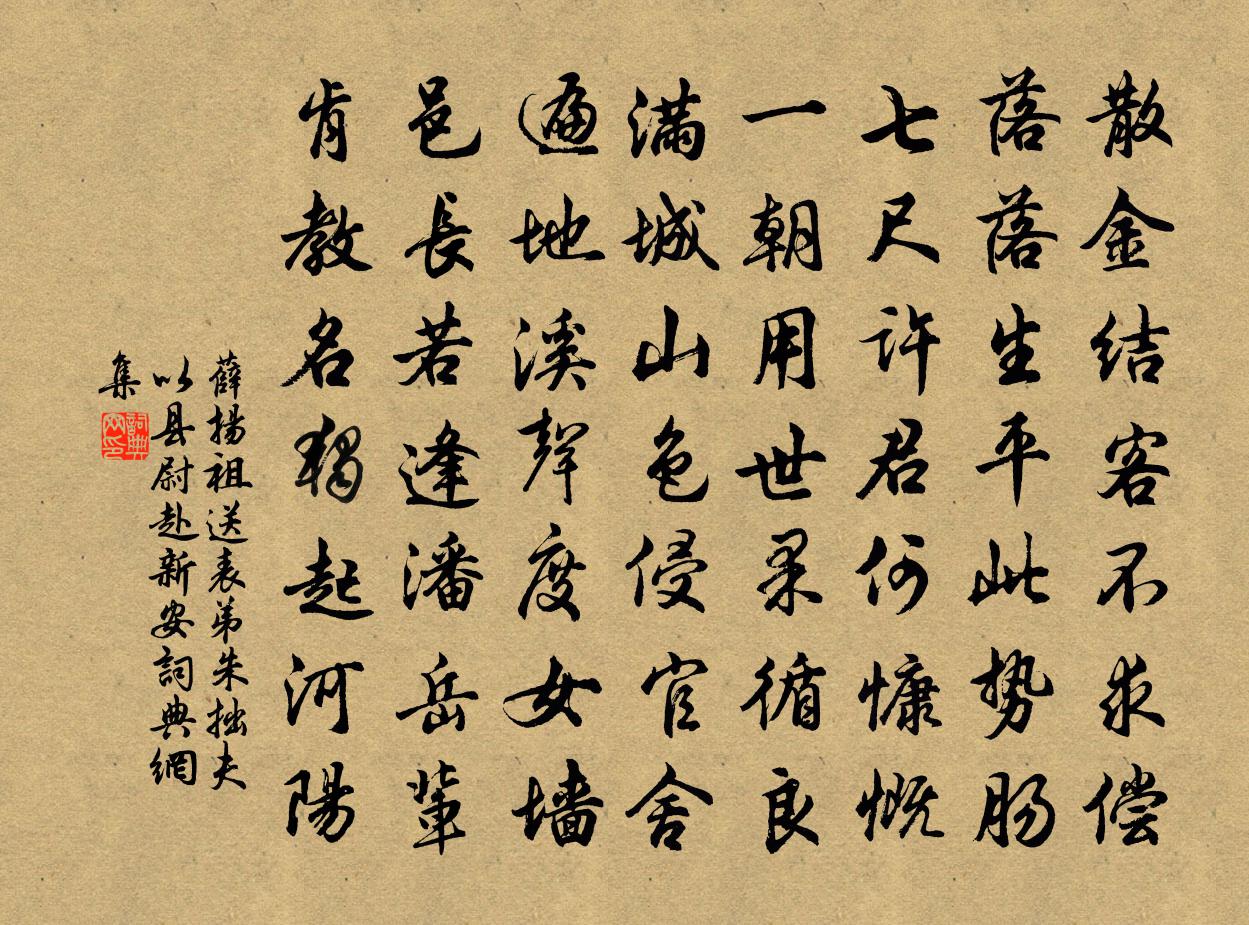 散金结客不求偿
落落生平此势肠
七尺许君何慷慨
一朝用世果循良
满城山色侵官舍
遍地溪声度女墙
邑長若逢潘岳輩
肯教名独起河陽
薛揚祖送表弟朱拙夫
以县尉赴新安詞典網
集
詞典
网印